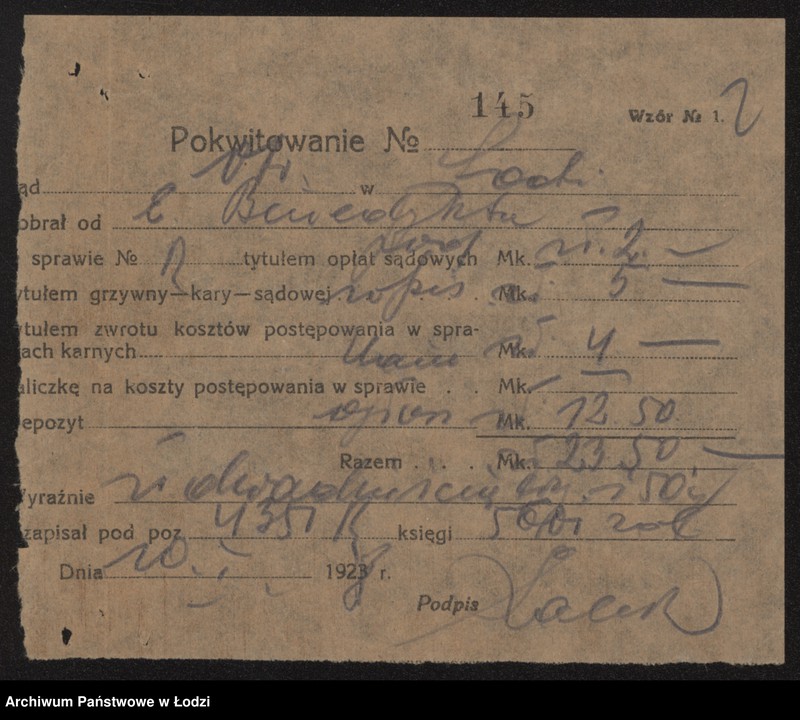 145
Wzór № 1. 2
Pokwitowanie №
ąd w Łodzi
obrał od E. Benedykta
sprawie № tytułem opłat sądowych Mk. zł. 2. —
ytułem grzywny—kary—sądowej . . . Mk. zł 5 —
ytułem zwrotu kosztów postępowania w spra-
ach karnych Mk. zł 4 —
aliczkę na koszty postępowania w sprawie . . Mk. —
epozyt Mk. zł 12 50
Razem . . . . Mk. 23 50 —
yraźnie zł dwadzieścia trzy i 50
zapisał pod poz. 4351 księgi
Dnia 10. I. 1928 r.
Podpis
Archiwum Państwowe w Łodzi